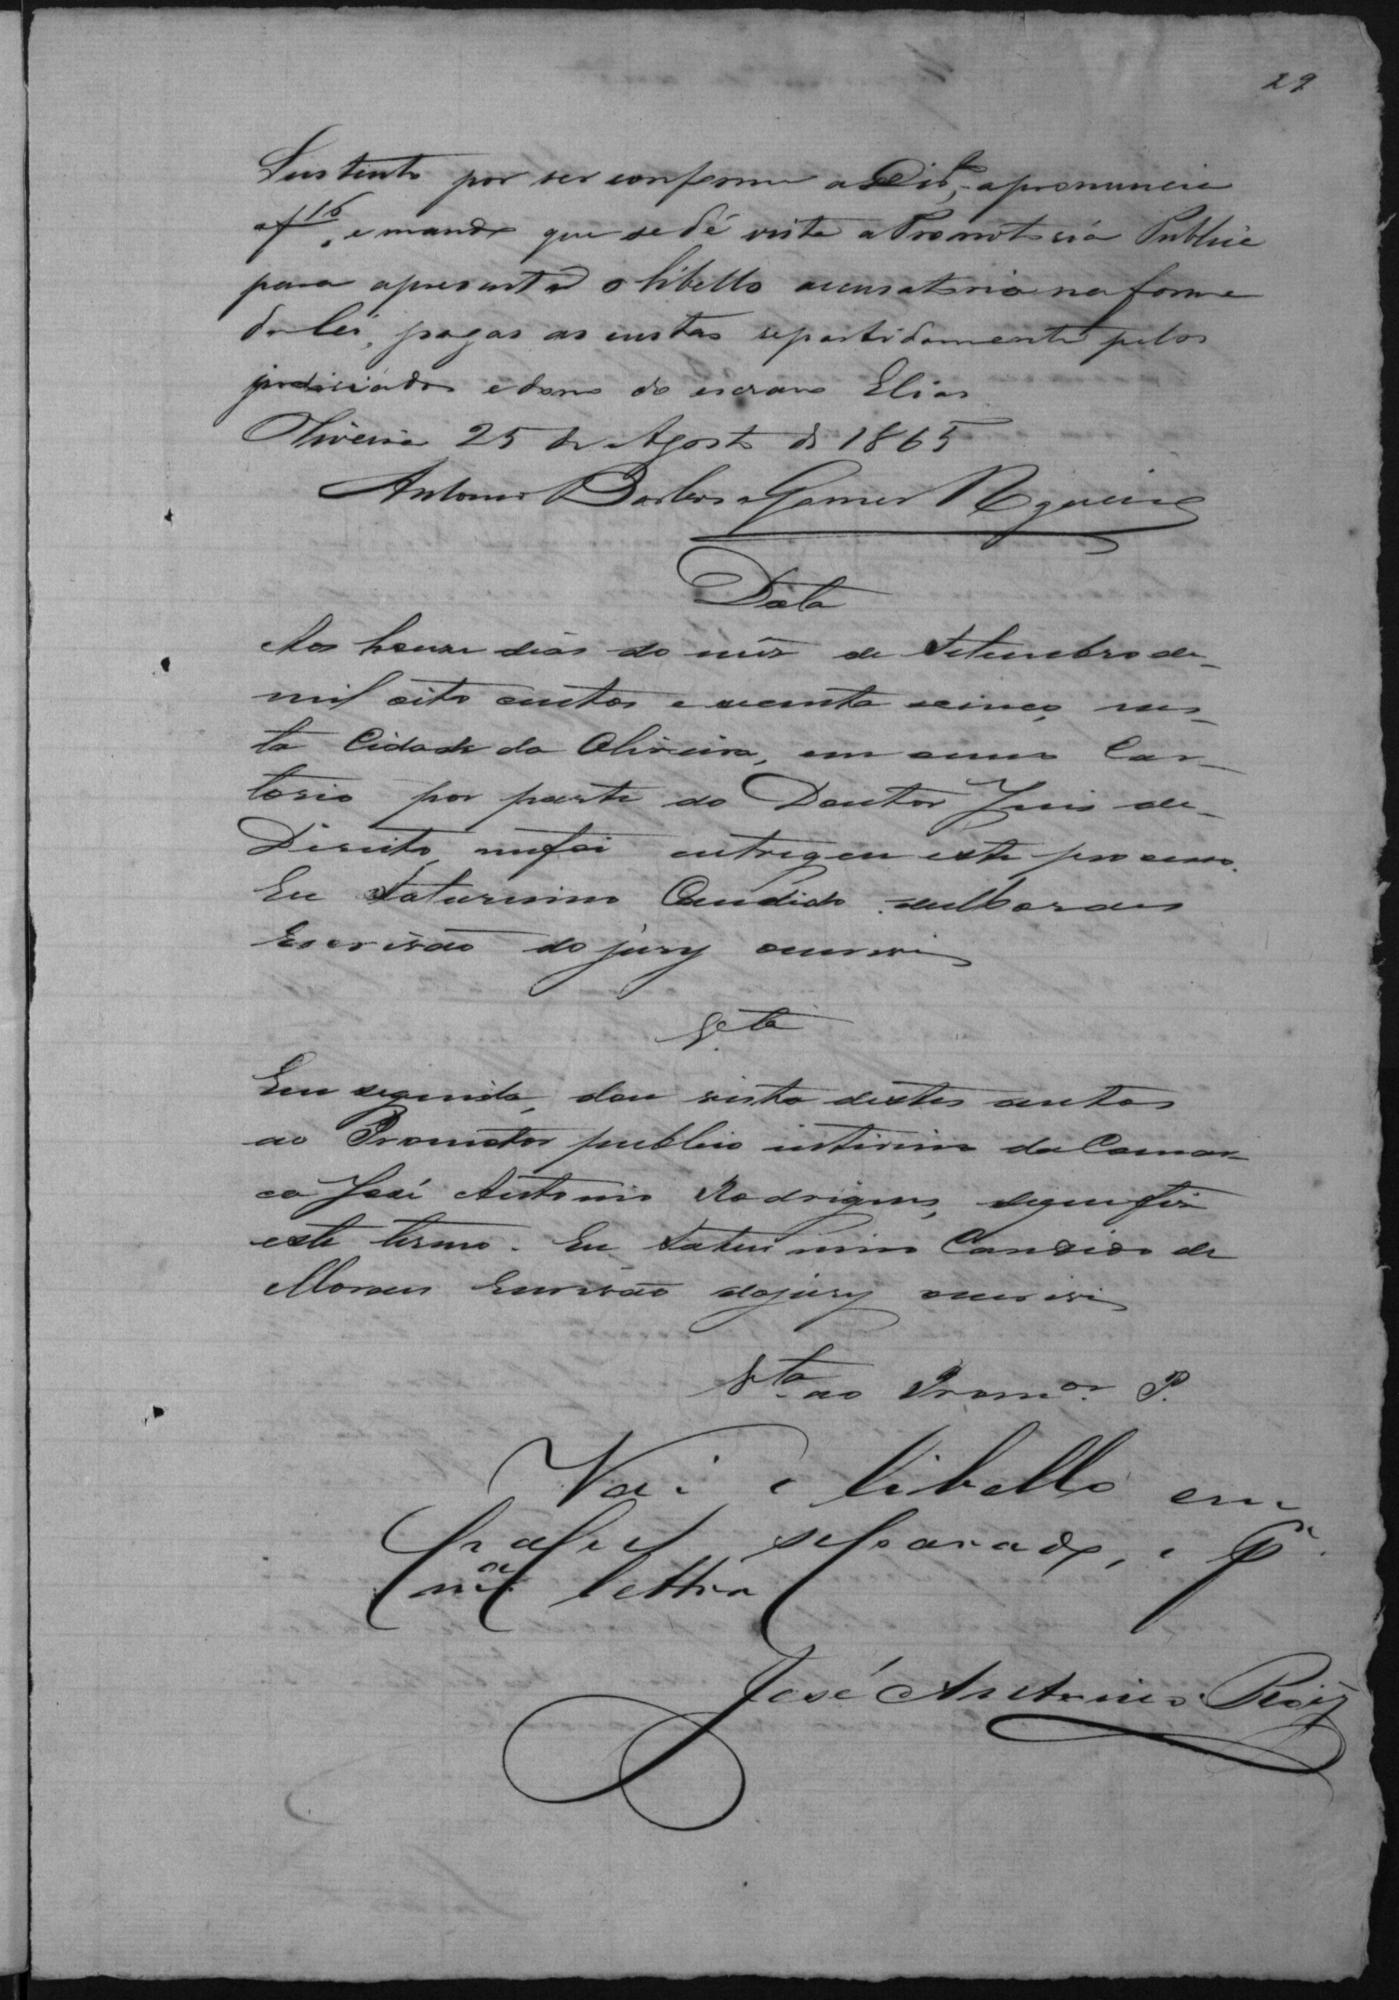 29
Sustento por ser conforme a Dirto, a pronuncia
af 16, e mando que se dê vista a Promotoria Publica
para apresentar o libello accusatorio na forma
da lei, pagas as custas repartidamente pelos
e dono do escravo Elias
Oliveira 25 de Agosto de 1865
Antonio Barbosa Gomes Nogueira
Data
Aos dias do mês de Setembro de
mil oito centos e secenta e cinco, nes-
ta Cidade da Oliveira, em meu Car-
torio por parte do Doutor Juis de
Direito me foi entregue este processo.
Eu Saturnino Candido de Moraes
Escrivão do jury escrevi
V.ta
Em seguida, dou vista destes autos
ao Promotor publico interino da Comar-
ca José Antonio Rodrigues, de que fiz
este termo. Eu Saturnino Candido de
Moraes Escrivão do jury escrevi
V.ta ao Promor. P.
Vai o libello em
papel separado, e pr.
ma. lettra
José Antonio Roiz